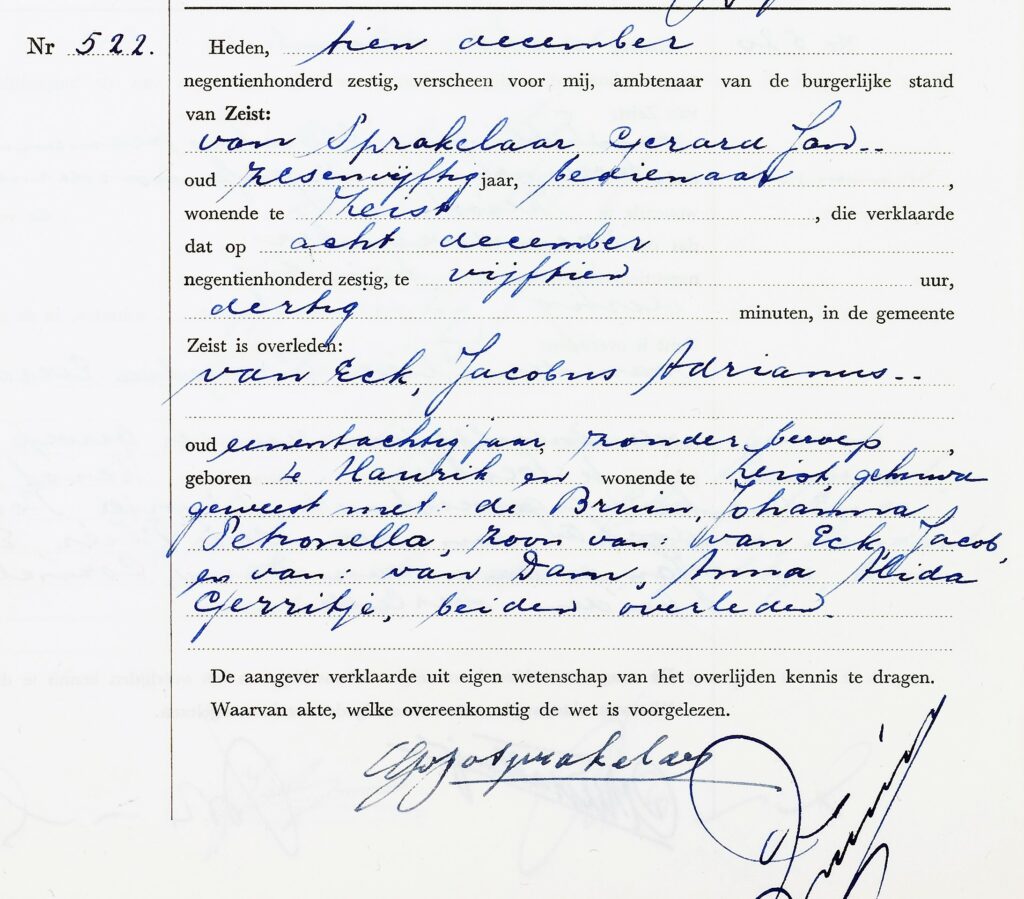 Nr 522.
Heden, tien december
negentienhonderd zestig, verscheen voor mij, ambtenaar van de burgerlijke stand
van Zeist:
van Sprakelaar, Gerard Jan--
oud zesenvijftig jaar, bedienaar ,
wonende te Zeist , die verklaarde
dat op acht december
negentienhonderd zestig, te vijftien uur,
dertig minuten, in de gemeente
Zeist is overleden:
van Eck, Jacobus Adrianus--
oud eenentachtig jaar, zonder beroep ,
geboren te Maurik en wonende te Zeist, gehuwd
geweest met: de Bruin, Johanna
Petronella, zoon van: van Eck, Jacob,
en van: van Dam, Anna Alida
Gerritje, beiden overleden.
De aangever verklaarde uit eigen wetenschap van het overlijden kennis te dragen.
Waarvan akte, welke overeenkomstig de wet is voorgelezen.